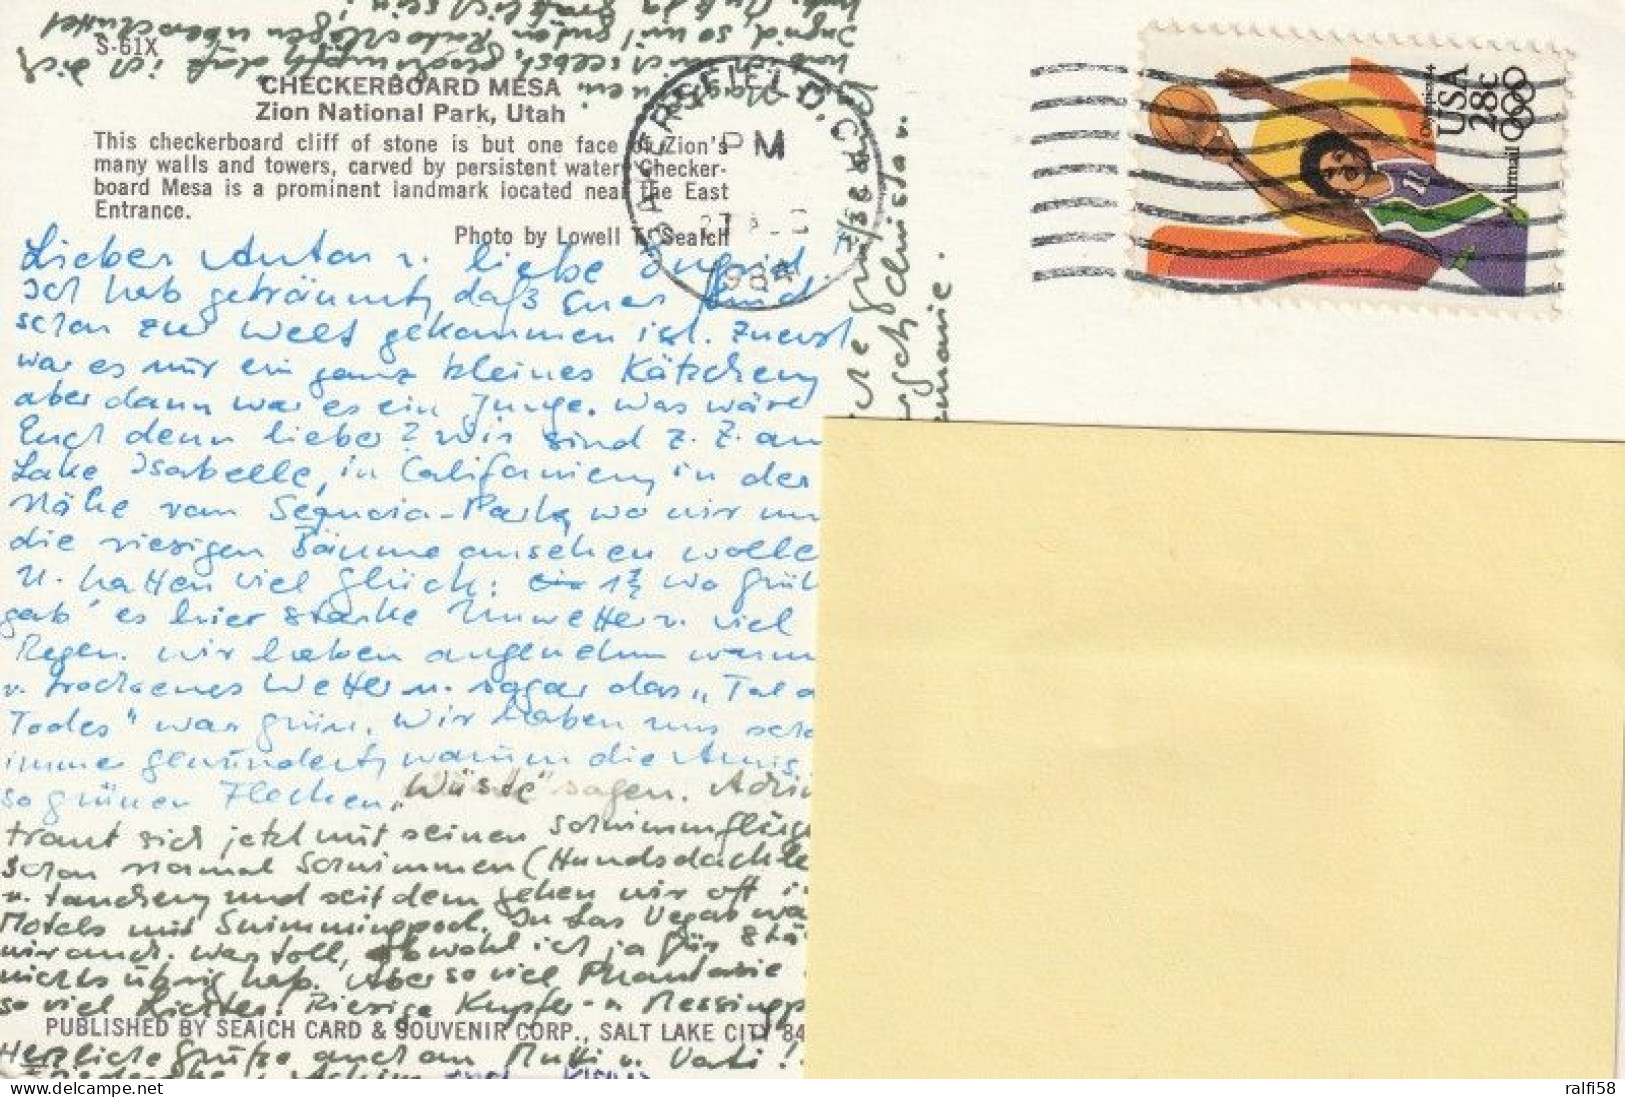 S-61X
CHECKERBOARD MESA
Zion National Park, Utah
This checkerboard cliff of stone is but one face of Zion's
many walls and towers, carved by persistent water. Checker-
board Mesa is a prominent landmark located near the East
Entrance.
Photo by Lowell T. Seaich
BAKERSFIELD, CA
PM
1984
Olympics 84
USA
28c
Airmail
Lieber Anton u. liebe Ingrid,
Ich hab geträumt, daß Euer Kind
schon zur Welt gekommen ist. Zuerst
war es nur ein ganz kleines Kätzchen,
aber dann war es ein Junge. Was wäre
Euch denn lieber? Wir sind z. Z. am
Lake Isabelle, in Californien, in der
Nähe vom Sequoia-Park, wo wir
die riesigen Bäume ansehen wolle
u. hatten viel Glück: 1½ Wo früh
gab es hier starke Unwetter u. viel
Regen. Wir haben angenehm warm
u. trockenes Wetter u. sogar das "Tal d
Todes" war grün. Wir haben uns scho
immer gewundert, warum die Amis
so grünen Flecken "Wüste" sagen. Adri
traut sich jetzt mit seinen Schwimmflüge
schon normal Schwimmen (Hundsdackle
u. tauchen, und seitdem gehen wir oft i
Motels mit Swimmingpool. In Las Vegas wa
wir auch. War toll, obwohl ich ja für Stä
nichts übrig hab. Aber so viel Phantasie
so viel Lichter. Riesige Kupfer- u. Messingp
PUBLISHED BY SEAICH CARD & SOUVENIR CORP., SALT LAKE CITY 84
Herzliche Grüße auch an Mutti u. Vati!
Achim und
ralfi58